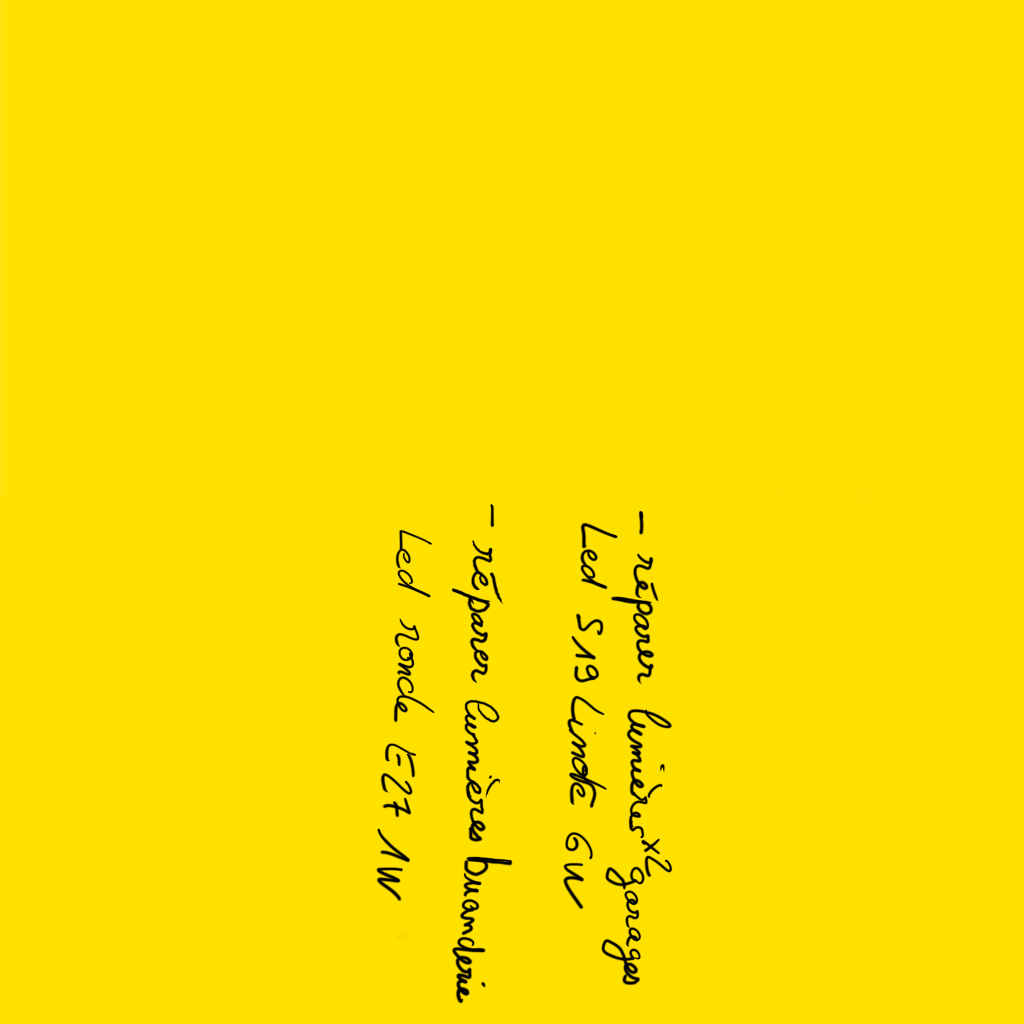 - réparer lumières x2 garages
Led S19 Linolite 6W
- réparer lumières buanderie
Led ronde E27 1W